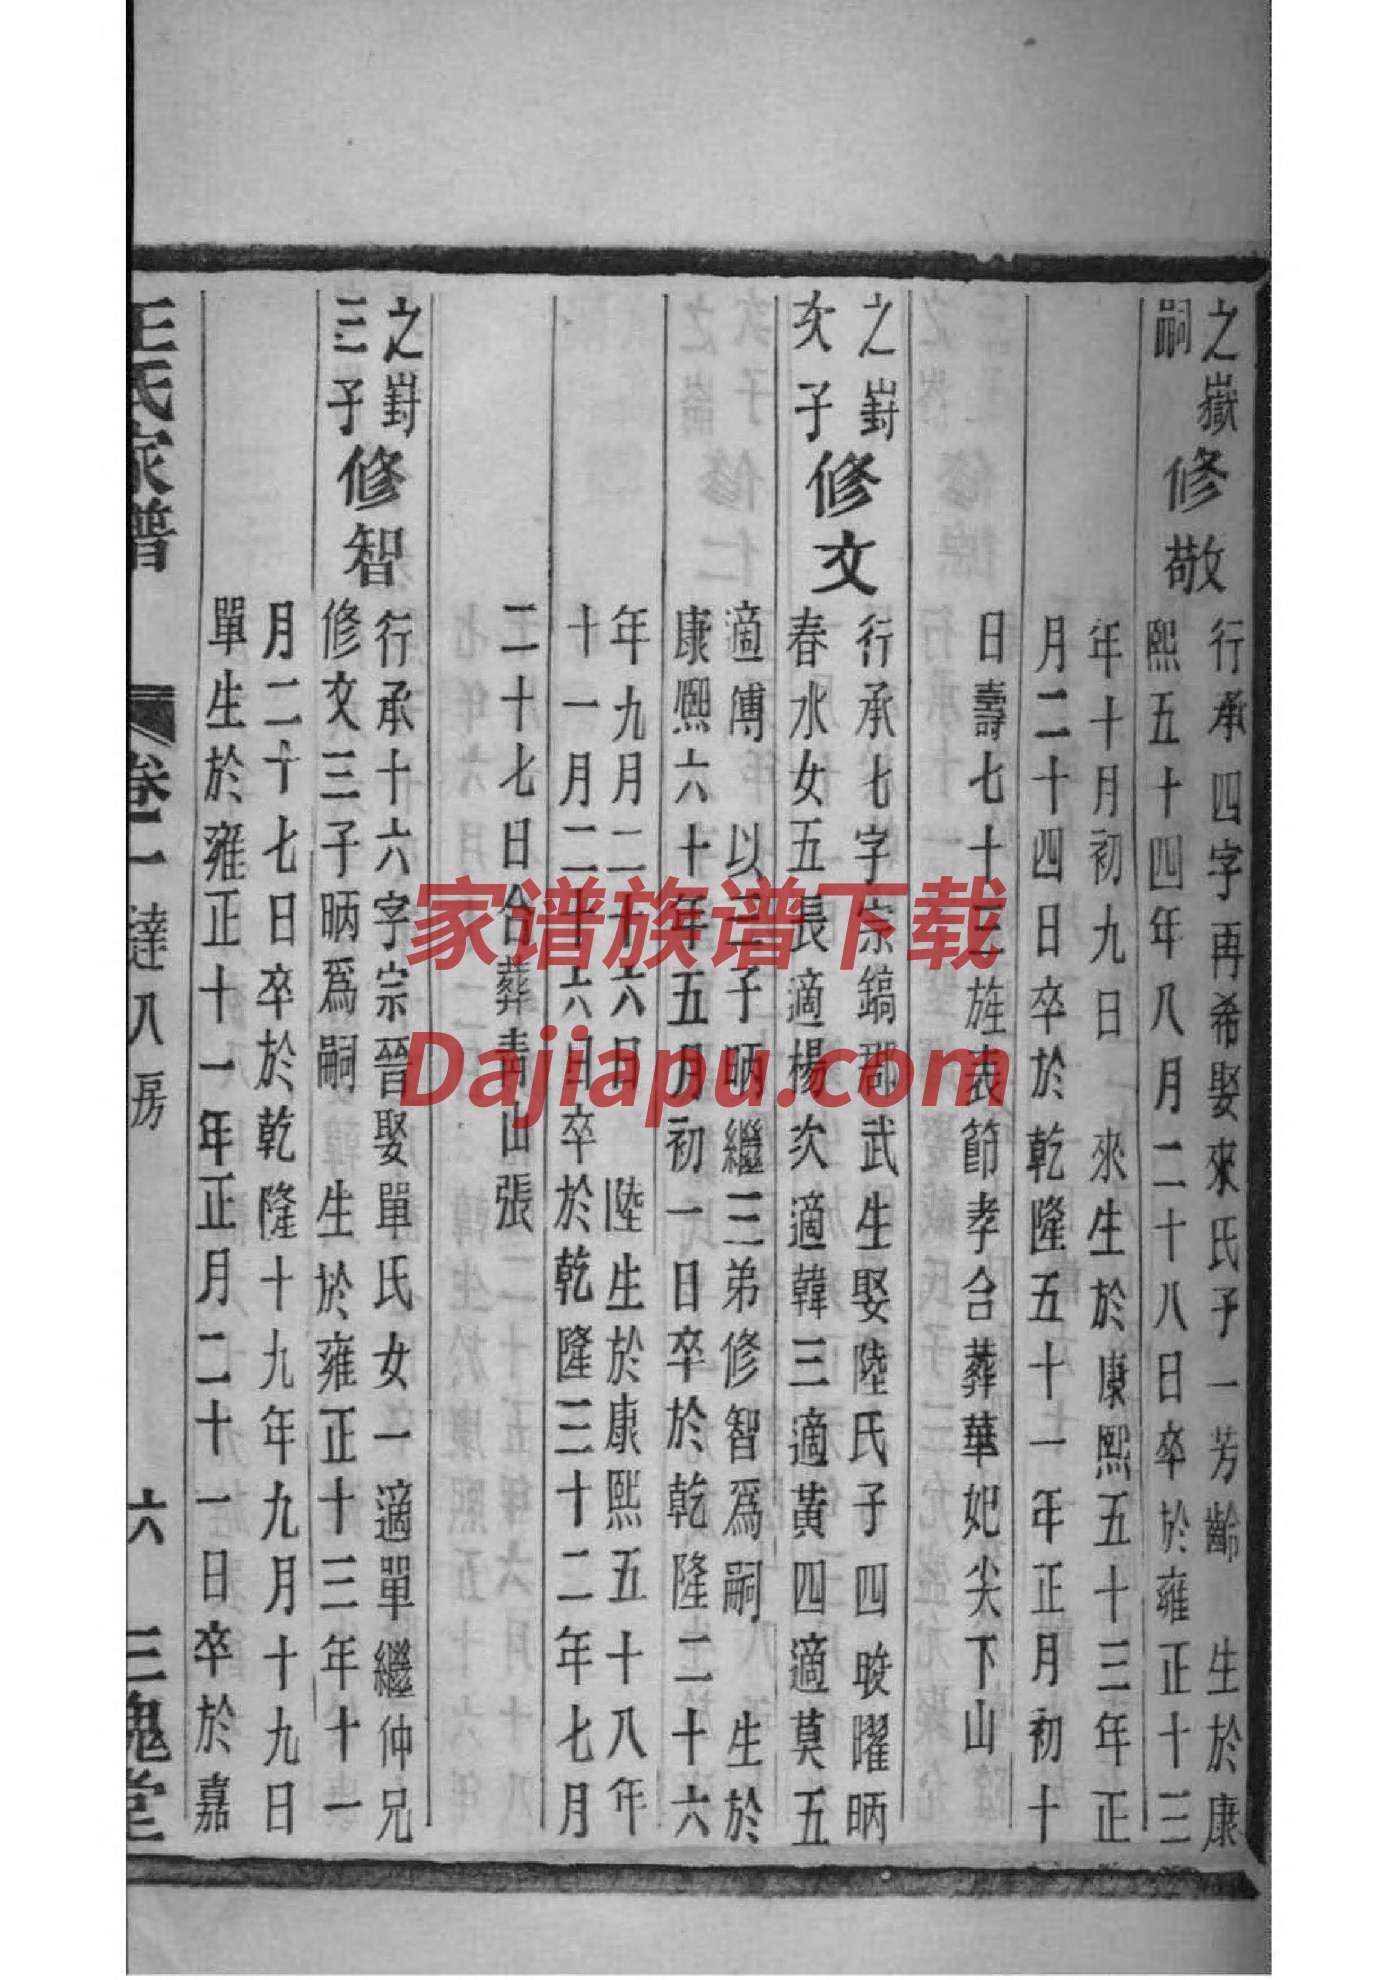 之嶽
嗣
修敬
行承四字再希娶來氏子一芳齡 生於康
熙五十四年八月二十八日卒於雍正十三
年十月初九日 來生於康熙五十三年正
月二十四日卒於乾隆五十一年正月初十
日壽七十三旌表節孝合葬華妃尖下山
之崶
次子
修文
行承七字宗鎬郡武生娶陸氏子四晙曜昞
春水女五長適楊次適韓三適黃四適莫五
適傅 以三子昞繼三弟修智爲嗣 生於
康熙六十年五月初一日卒於乾隆二十六
年九月二十六日 陸生於康熙五十八年
十一月二十六日卒於乾隆三十二年七月
二十七日合葬青山張
之崶
三子
修智
行承十六字宗晉娶單氏女一適單繼仲兄
修文三子昞爲嗣 生於雍正十三年十一
月二十七日卒於乾隆十九年九月十九日
單生於雍正十一年正月二十一日卒於嘉
王氏家譜
卷一
達八房
六
三槐堂
家谱族谱下载
Dajiapu.com